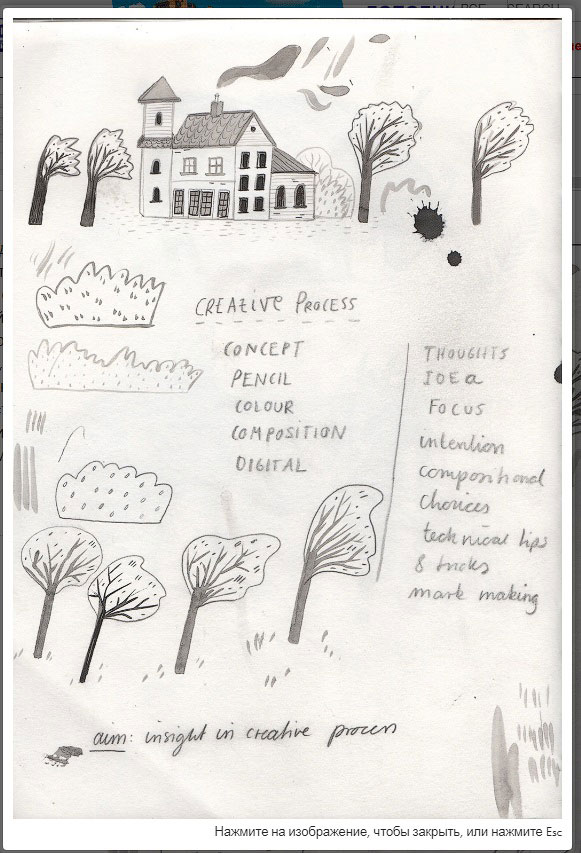 CREATIVE PROCESS
CONCEPT
PENCIL
COLOUR
COMPOSITION
DIGITAL
THOUGHTS
IDEa
FOCUS
intention
compositional
choices
technical tips
& tricks
mark making
aim: insight in creative process
Нажмите на изображение, чтобы закрыть, или нажмите Esc